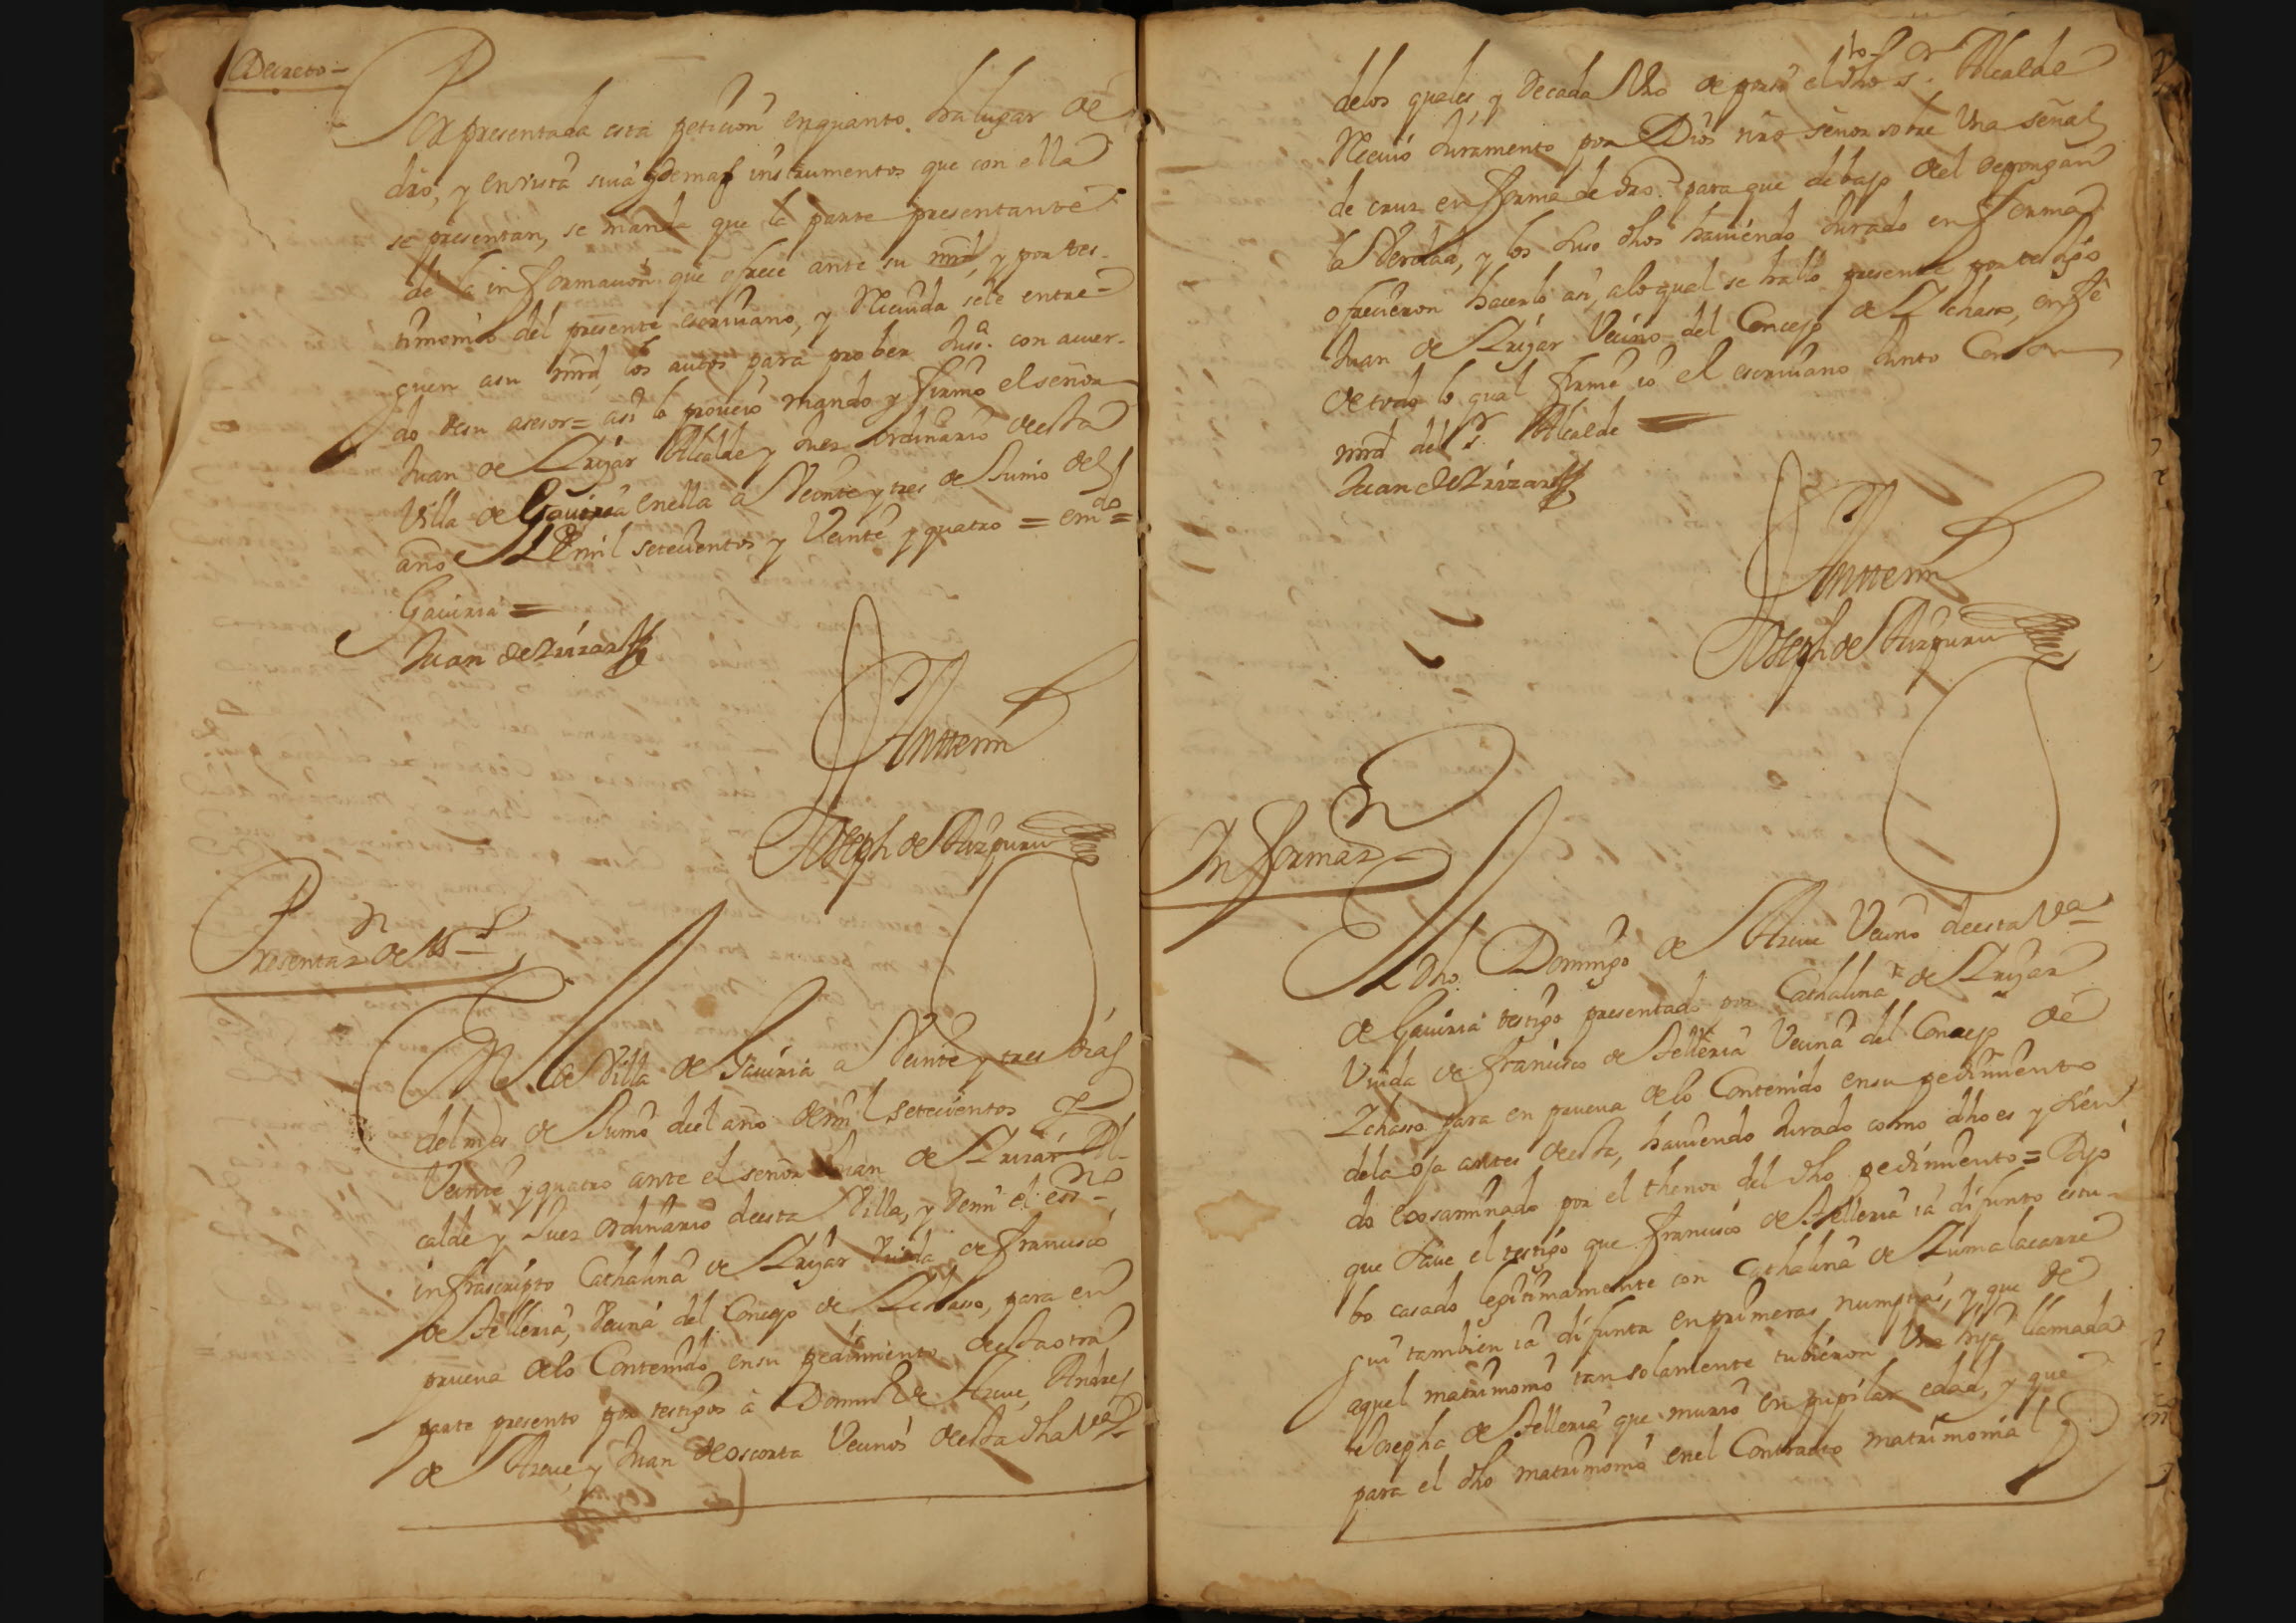 Decreto-
Por presentada esta peticion enquanto ha lugar de
dro, y en vista suia y demas instrumentos que con ella
se presentan, se manda que la parte presentante
de la informacion que ofrece ante su mrd, y por tes-
timonio del presente escriuano, y Reciuida sele entre-
guen asu mrd los autos para prober Jussª. con acuer-
do desu asesor= asi lo proueió mando y firmó el señor
Juan de Irizar Alcalde y Juez ordinario desta
Villa de Gauiria enella a Veinte y tres de Junio del
año de mil setecientos y Veinte y quatro = emdo=
Gauiria=
Juan de Irizar
Antemi
Joseph de Aizpuru
Presentaz.n de tts
En la Villa de Gauiria a Veinte y tres dias
del mes de Junio del año de mil setecientos y
Veinte y quatro ante el señor Juan de Irizar Al-
calde y Juez ordinario desta Villa, y demi el essno
infrascripto Cathalina de Irizar Viuda de francisco
de Telleria, Vecina del Concejo de Ichasso, para en
prueua delo Contenido ensu pedimiento desta otra
parte presento por testigos à Domingo de Azcue, Andres
de Azcue, y Juan de oscorta Vecinos desta dha Vª
delos quales, y decada Uno de por si el dho sr. Alcalde
Reciuió Juramento por Dios nro señor sobre Una señal
de cruz en forma de dro. para que debajo del depongan
la Verdad, y los suso dhos hauiendo Jurado en forma
ofrecieron hacerlo asi, alo qual se hallo presente por testigo
Juan de Irizar Vecino del Concejo de Ichaso, en fe
de todo lo qual firmé io el escriuano Junto Con su
mrd del sr. Alcalde
Juan de Irizar
Antemi
Joseph de Aizpuru
Informaz.n
El dho Domingo de Azcue Vecino desta Vª
de Gauiria testigo presentado por Cathalina de Irizar
Viuda de francisco de Telleria Vecina del Concejo de
Ichasso para en prueua delo Contenido ensu pedimiento
dela oja antes desta, hauiendo Jurado como dho es y sien
do exsaminado por el thenor del dho pedimiento = Dijo
que saue el testigo que francisco de Telleria ia difunto estu-
bo casado legitimamente con Cathalina de Zumalacarre
gui tambien ia difunta en primeras numpcias, y que de
aquel matrimonio tan solamente tubieron Una hija llamada
Josepha de Telleria que murio en pupilar edad, y que
para el dho matrimonio enel Contracto matrimonial